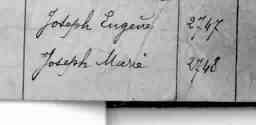 Joseph Eugène 2747
Joseph Marie 2748